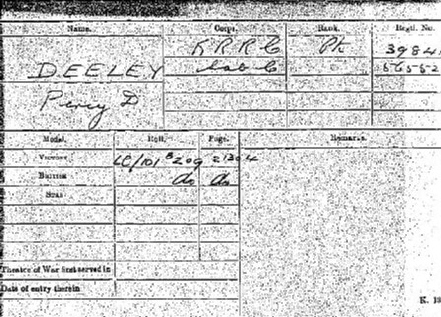 Name. Corps. Rank. Regtl. No.
DEELEY K R R C Pte 3984
Percy D Lab C 56552
Medal. Roll. Page. Remarks.
Victory LC/101 B209 21304
British do do
Star
Theatre of War first served in
Date of entry therein
K. 13